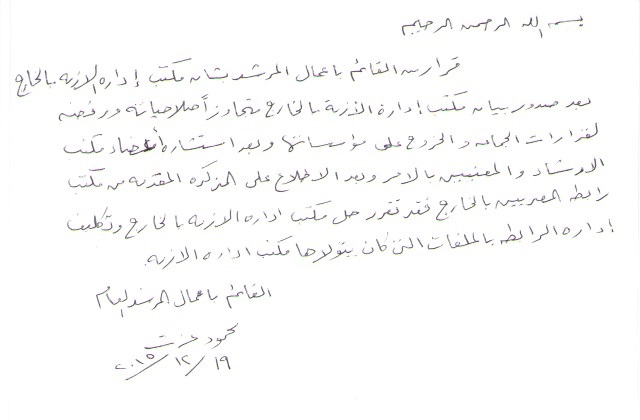 بسم الله الرحمن الرحيم
قرار من القائم باعمال المرشد بشان مكتب إداره الازمه بالخارج
بعد صدور بيان مكتب إدارة الأزمة بالخارج متجاوزاً صلاحياته ورفضه
لقرارات الجماعه والخروج على مؤسساتها وبعد استشارة أعضاء مكتب
الارشاد والمعنيين بالامر وبعد الاطلاع على المذكره المقدمه من مكتب
رابطه المصريين بالخارج فقد تقرر حل مكتب اداره الازمه بالخارج وتكليف
إداره الرابطه بالملفات التى كان يتولاها مكتب اداره الازمه.
القائم باعمال المرشد العام
محمود عزت
١٩/١٢/٢٠١٥